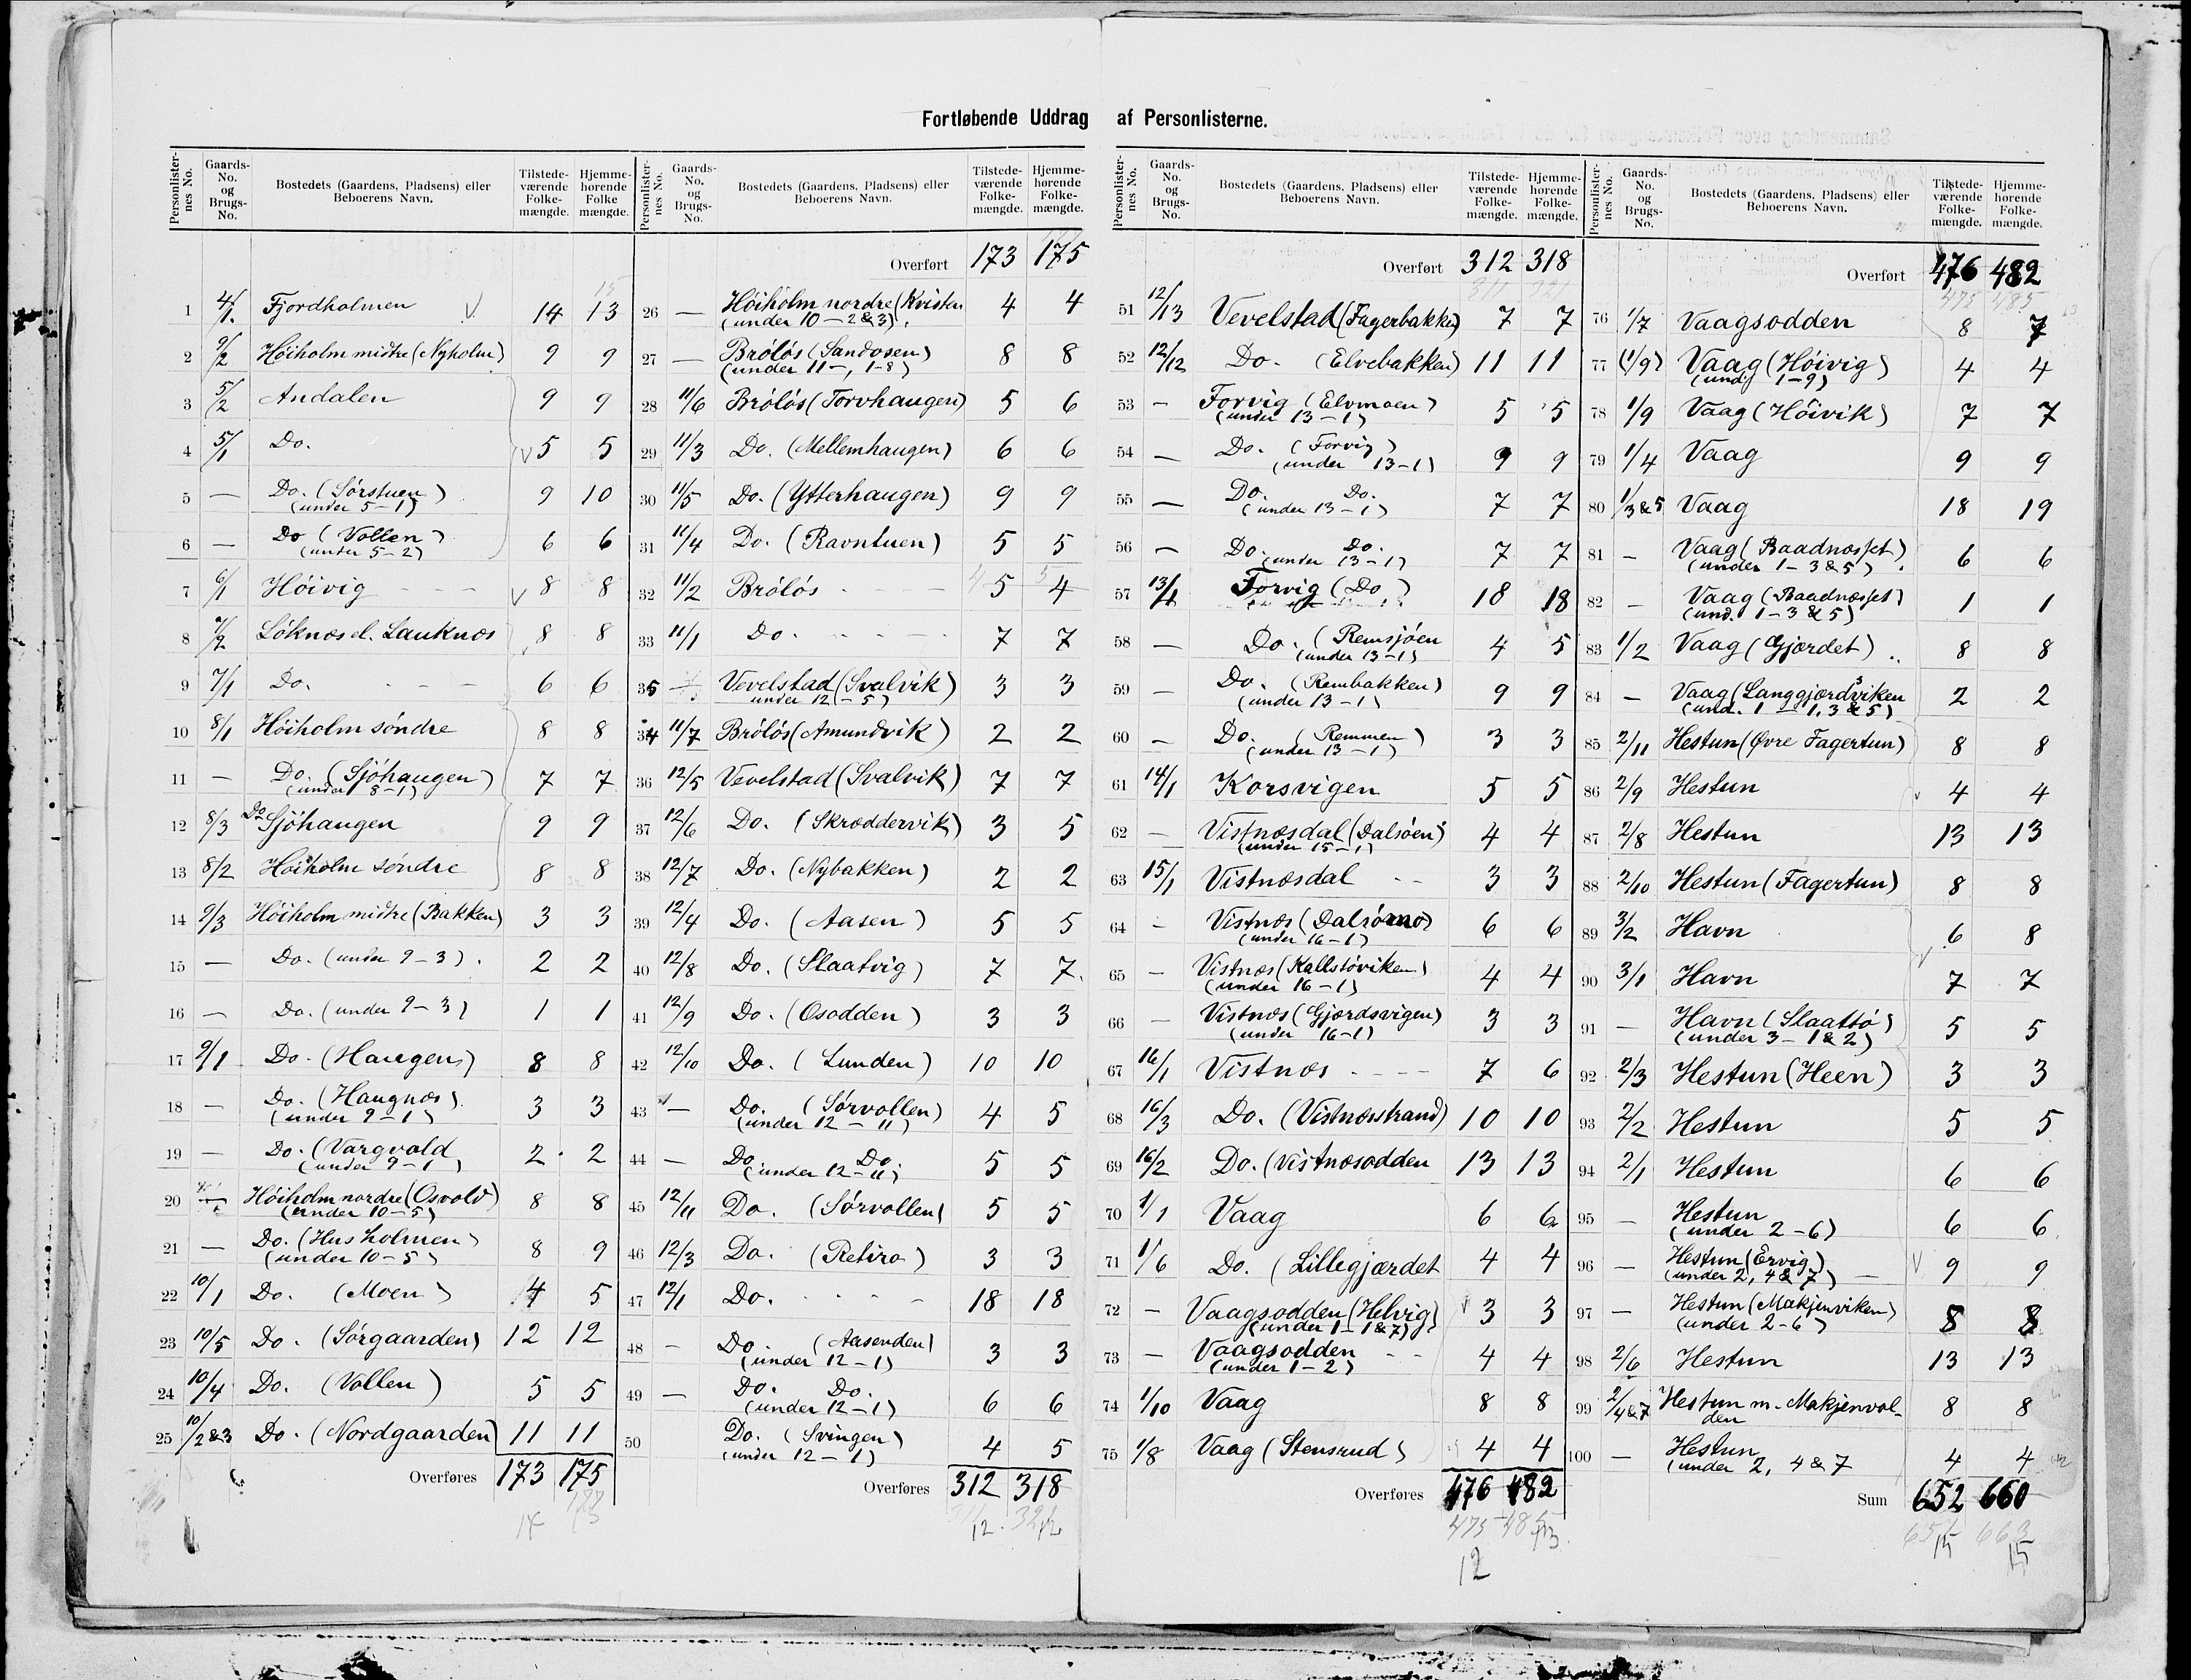 Fortløbende Uddrag af Personlisterne.
Personlister-nes No. Gaards-No. og Brugs-No. Bostedets (Gaardens, Pladsens) eller Beboerens Navn. Tilstede-værende Folke-mængde. Hjemme-hørende Folke mængde.
1 4/1. Fjordholmen 14 13
2 9/2 Höiholm midtre (Nyholm) 9 9
3 5/2 Andalen 9 9
4 5/1 Do. 5 5
5 — Do. (Sörstuen) 9 10
(under 5-1)
6 — Do (Vollen) 6 6
(under 5-2)
7 6/1 Höivig 8 8
8 7/2 Löknæs el. Lauknæs 8 8
9 7/1 Do. 6 6
10 8/1 Höiholm söndre 8 8
11 — Do. (Sjöhaugen) 7 7
(under 8-1)
12 8/3 Do Sjöhaugen 9 9
13 8/2 Höiholm söndre 8 8
14 9/3 Höiholm midtre (Bakken) 3 3
15 — Do. (under 9-3). 2 2
16 — Do. (under 9-3) 1 1
17 9/1 Do. (Haugen) 8 8
18 — Do. (Haugnæs) 3 3
(under 9-1)
19 — Do. (Vargvold 2 2
(under 9-1)
20 Höiholm nordre (Osvold) 8 8
(under 10-5)
21 — Do. (Husholmen) 8 9
(under 10-5)
22 10/1 Do. (Moen) 4 5
23 10/5 Do. (Sörgaarden) 12 12
24 10/4 Do. (Vollen) 5 5
25 10/2&3 Do. (Nordgaarden) 11 11
Overføres 173 175
Personlister-nes No. Gaards-No. og Brugs-No. Bostedets (Gaardens, Pladsens) eller Beboerens Navn. Tilstede-værende Folke-mængde. Hjemme-hørende Folke-mængde.
Overført 173 175
26 — Höiholm nordre (Kvisten 4 4
(under 10-2&3).
27 — Brölös (Sandosen) 8 8
(under 11-, 1-8)
28 11/6 Brölös (Torvhaugen) 5 6
29 11/3 Do. (Mellemhaugen) 6 6
30 11/5 Do. (Ytterhaugen) 9 9
31 11/4 Do. (Ravntuen) 5 5
32 11/2 Brölös 5 4
33 11/1 Do. 7 7
35 Vevelstad (Svalvik) 3 3
under 12-5)
34 11/7 Brölös (Amundvik) 2 2
36 12/5 Vevelstad (Svalvik) 7 7
37 12/6 Do. (Skræddervik) 3 5
38 12/7 Do. (Nybakken) 2 2
39 12/4 Do. (Aasen) 5 5
40 12/8 Do. (Slaatvig) 7 7.
41 12/9 Do. (Osodden) 3 3
42 12/10 Do. (Lunden) 10 10
43 — Do. (Sörvollen) 4 5
(under 12-11)
44 — Do. Do. 5 5
(under 12-11)
45 12/11 Do. (Sörvollen) 5 5
46 12/3 Do. (Retiro) 3 3
47 12/1 Do. 18 18
48 — Do. (Aasenden) 3 3
(under 12-1)
49 — Do. Do. 6 6
(under 12-1)
50 Do. (Svingen) 4 5
(under 12-1)
Overføres 312 318
Personlister-nes No. Gaards-No. og Brugs-No. Bostedets (Gaardens, Pladsens) eller Beboerens Navn. Tilstede-værende Folke-mængde. Hjemme-hørende Folke-mængde.
Overført 312 318
51 12/13 Vevelstad (Fagerbakken) 7 7
52 12/12 Do. (Elvebakken) 11 11
53 — Forvig (Elvmoen) 5 5
(under 13-1)
54 — Do. (Forvig) 9 9
(under 13-1)
55 — Do. Do. 7 7
(under 13-1)
56 — Do. Do. 7 7
(under 13-1)
57 13/1 Forvig (Do) 18 18
58 — Do. (Remsjöen 4 5
(under 13-1)
59 — Do. (Rembakken) 9 9
(under 13-1)
60 — Do. (Remmen) 3 3
(under 13-1)
61 14/1 Korsvigen 5 5
62 — Vistnæsdal (Dalsöen) 4 4
(under 15-1)
63 15/1 Vistnæsdal 3 3
64 - Vistnæs (Dalsömo) 6 6
(under 16-1)
65 — Vistnæs (Kallstöviken) 4 4
(under 16-1)
66 — Vistnæs (Gjærdsvigen) 3 3
(under 16-1)
67 16/1 Vistnæs 7 6
68 16/3 Do. (Vistnæsstrand) 10 10
69 16/2 Do. (Vistnæsodden 13 13
70 1/1 Vaag 6 6
71 1/6 Do. (Lillegjærdet 4 4
72 — Vaagsodden (Helvig) 3 3
(under 1-1&7)
73 — Vaagsodden 4 4
(under 1-2)
74 1/10 Vaag 8 8
75 1/8 Vaag (Stensrud) 4 4
Overføres 476 482
475 485
12 13
Personlister-nes No. Gaards-No. og Brugs-No. Bostedets (Gaardens, Pladsens) eller Beboerens Navn. Tilstede-værende Folke-mængde. Hjemme-hørende Folke-mængde.
Overført 476 482
475 485
76 1/7 Vaagsodden 8 7
77 (1/9) Vaag (Höivig) 4 4
(und. 1-9)
78 1/9 Vaag (Höivik) 7 7
79 1/4 Vaag 9 9
80 1/3&5 Vaag 18 19
81 — Vaag (Baadnæsset) 6 6
(under 1-3&5)
82 — Vaag (Baadnæsset) 1 1
(und. 1-3&5)
83 1/2 Vaag (Gjærdet) 8 8
84 — Vaag (Langgjærdsviken 2 2
(und. 1-1, 3&5)
85 2/11 Hestun (Øvre Fagertun) 8 8
86 2/9 Hestun 4 4
87 2/8 Hestun 13 13
88 2/10 Hestun (Fagertun) 8 8
89 3/2 Havn 6 8
90 3/1 Havn 7 7
91 — Havn (Slaattö) 5 5
(under 3-1&2)
92 2/3 Hestun (Heen) 3 3
93 2/2 Hestun 5 5
94 2/1 Hestun 6 6
95 — Hestun 6 6
(under 2-6)
96 — Hestun (Ervig) 9 9
(under 2, 4&7)
97 — Hestun (Makjenviken) 8 8
(under 2-6)
98 2/6 Hestun 13 13
99 2/4&7 Hestun m. Makjenvol- 8 8
den
100 — Hestun 4 4
(under 2, 4&7
Sum 652 660